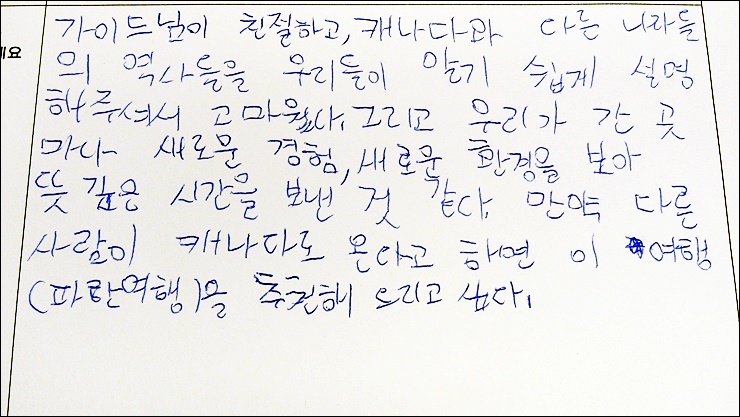 세요
가이드님이 친절하고, 캐나다와 다른 나라들
의 역사들을 우리들이 알기 쉽게 설명
해주셔서 고마웠다. 그리고 우리가 간 곳
마다 새로운 경험, 새로운 환경을 보아
뜻 깊은 시간을 보낸 것 같다. 만약 다른
사람이 캐나다로 온다고 하면 이 여행
(파란여행)을 추천해 드리고 싶다.